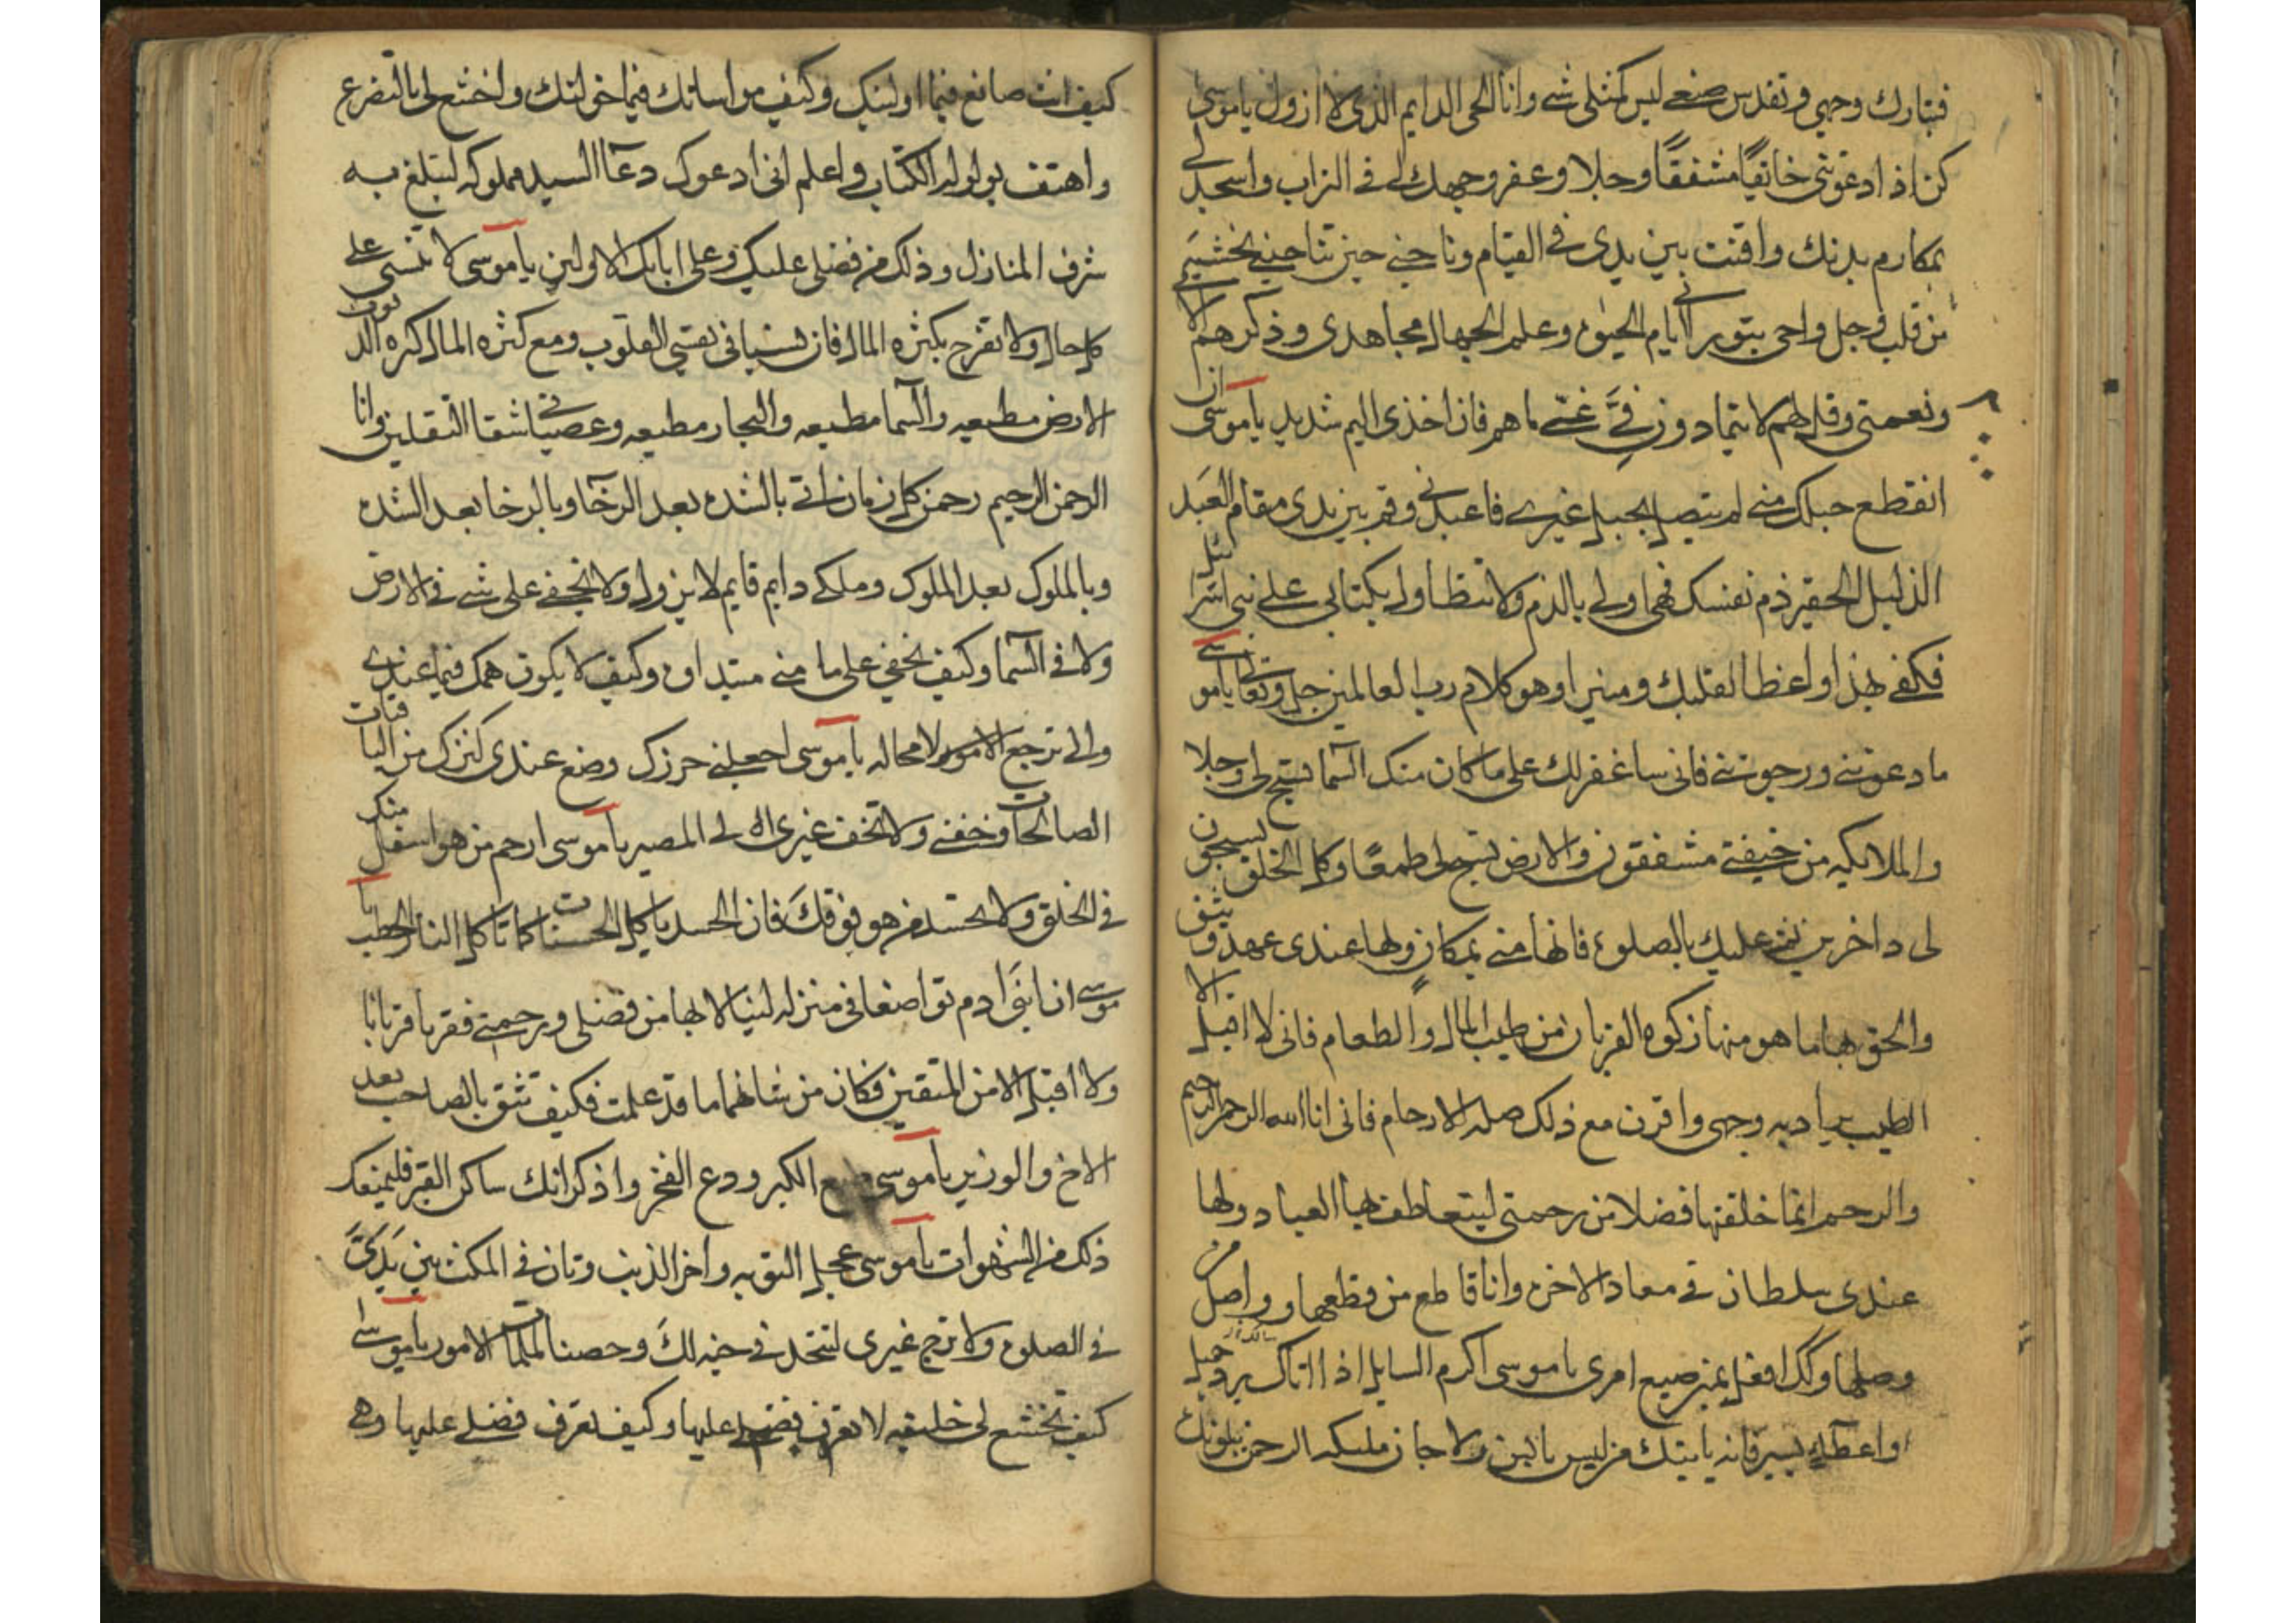 فتبارك وجهي وتقدس صنعي ليس كمثلي شي وانا الحي الدايم الذي لا ازول ياموسى
كن اذا دعوتني خائفًا مشفقًا وجلا وعفر وجهك لي في التراب واسجد لي
بمكارم بدنك واقنت بين يدي في القيام وناجني حين تناجيني بخشيه
من قلب وجل واحي بتوراتي ايام الحيوة وعلم الجهال محامدي وذكرهم الاي
ونعمتي وقل لهم لا يتمادون في غي ما هم فان اخذي اليم شديد ياموسى ان
انقطع حبلك مني لم يتصل بحبل غيري فاعبدني وقم بين يدي مقام العبد
الذليل الحقير ذم نفسك فهي اولى بالذم ولا تتطاول بكتابي على بني اسرائيل
فكفى بهذا واعظا لقلبك ومنيرا وهو كلام رب العالمين جل وتعالى ياموسى
ما دعوتني ورجوتني فاني ساغفر لك على ما كان منك السما تسبح لي وجلا
والملائكيه من خيفتي مشفقون والارض تسبح لي طمعًا وكل الخلق يسبحون
لي داخرين ثم عليك بالصلوة فانها مني بمكان ولها عندي عهد وثيق
والحق بها ما هو منها زكوة القربان من طيب المال والطعام فاني لا اقبل الا
الطيب يراد به وجهي واقرن مع ذلك صله الارحام فاني انا الله الرحمن الرحيم
والرحم انما خلقتها فضلا من رحمتي ليتعاطف بها العباد ولها
عندي سلطان في معاد الاخرة وانا قاطع من قطعها وواصل من
وصلها وكذلك افعل بمن ضيع امري ياموسى اكرم السايل اذا اتاك برد جميل
او اعطاء يسير فانه ياتيك من ليس بانس ولا جان مليكه الرحمن يبلونك
كيف انت صانع فيما اوليتك وكيف مواساتك فيما خولتك واخشع لي بالتضرع
واهتف بولوله الكتاب واعلم اني ادعوك دعآ السيد مملوكه لتبلغ به
شرف المنازل وذلك من فضلي عليك وعلى ابائك الاولين ياموسى لا تنسني على
كل حال ولا تفرح بكثره المال فان نسياني تقسي القلوب ومع كثره المال كثره الذنوب
الارض مطيعه والسما مطيعه والبحار مطيعه وعصياني شقا الثقلين وانا
الرحمن الرحيم رحمن كل زمان اتي بالشدة بعد الرخآ وبالرخا بعد الشدة
وبالملوك بعد الملوك وملكي دايم قايم لا يزول ولا يخفى على شي في الارض
ولا في السما وكيف يخفى على ما مني مبتداه وكيف لا يكون همك فيما عندي
والي ترجع الامور لا محاله ياموسى اجعلني حرزك وضع عندي كنزك من الباقيات
الصالحات وخفني ولا تخف غيري الي المصير ياموسى ارحم من هو اسفل منك
في الخلق ولا تحسد من هو فوقك فان الحسد ياكل الحسنات كما تاكل النار الحطب يا
موسى ان ابني ادم تواضعا في منزله لينالا بها من فضلي ورحمتي فقربا قربانا
ولا اقبل الا من المتقين فكان من شانهما ما قد علمت فكيف تثق بالصاحب بعد
الاخ والوزير ياموسى ضع الكبر ودع الفخر واذكر انك ساكن القبر فليمنعك
ذلك من الشهوات ياموسى عجل التوبه واخر الذنب وتان في المكث بين يديَّ
في الصلوة ولا ترج غيري لتتخذني جنه لك وحصنا لملمات الامور ياموسى
كيف تخشع لي خليقه لا تعرف فضلي عليها وكيف تعرف فضلي عليها وهي